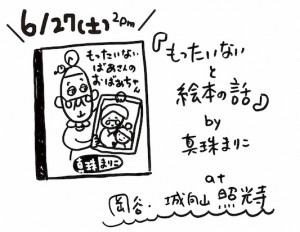 6/27(土)2pm
もったいない
ばあさんの
おばあちゃん
真珠まりこ
『もったいない
と
絵本の話』
by
真珠まりこ
at
岡谷・城向山 照光寺